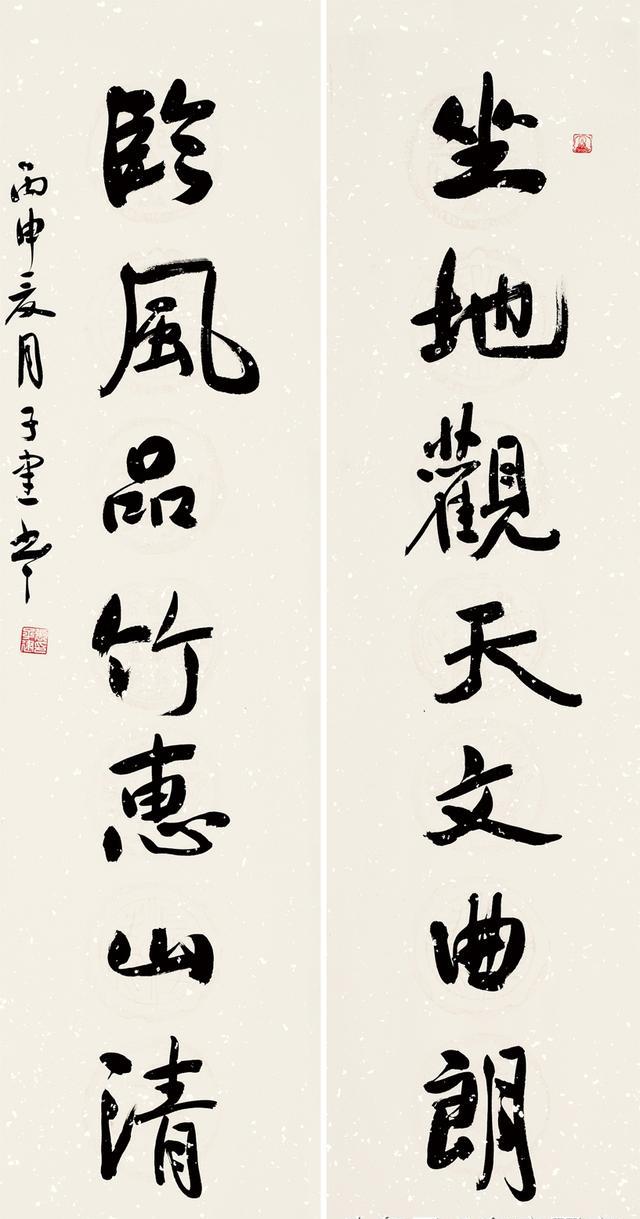 坐地觀天文曲朗
臨風品竹惠山清
丙申夏月子建書